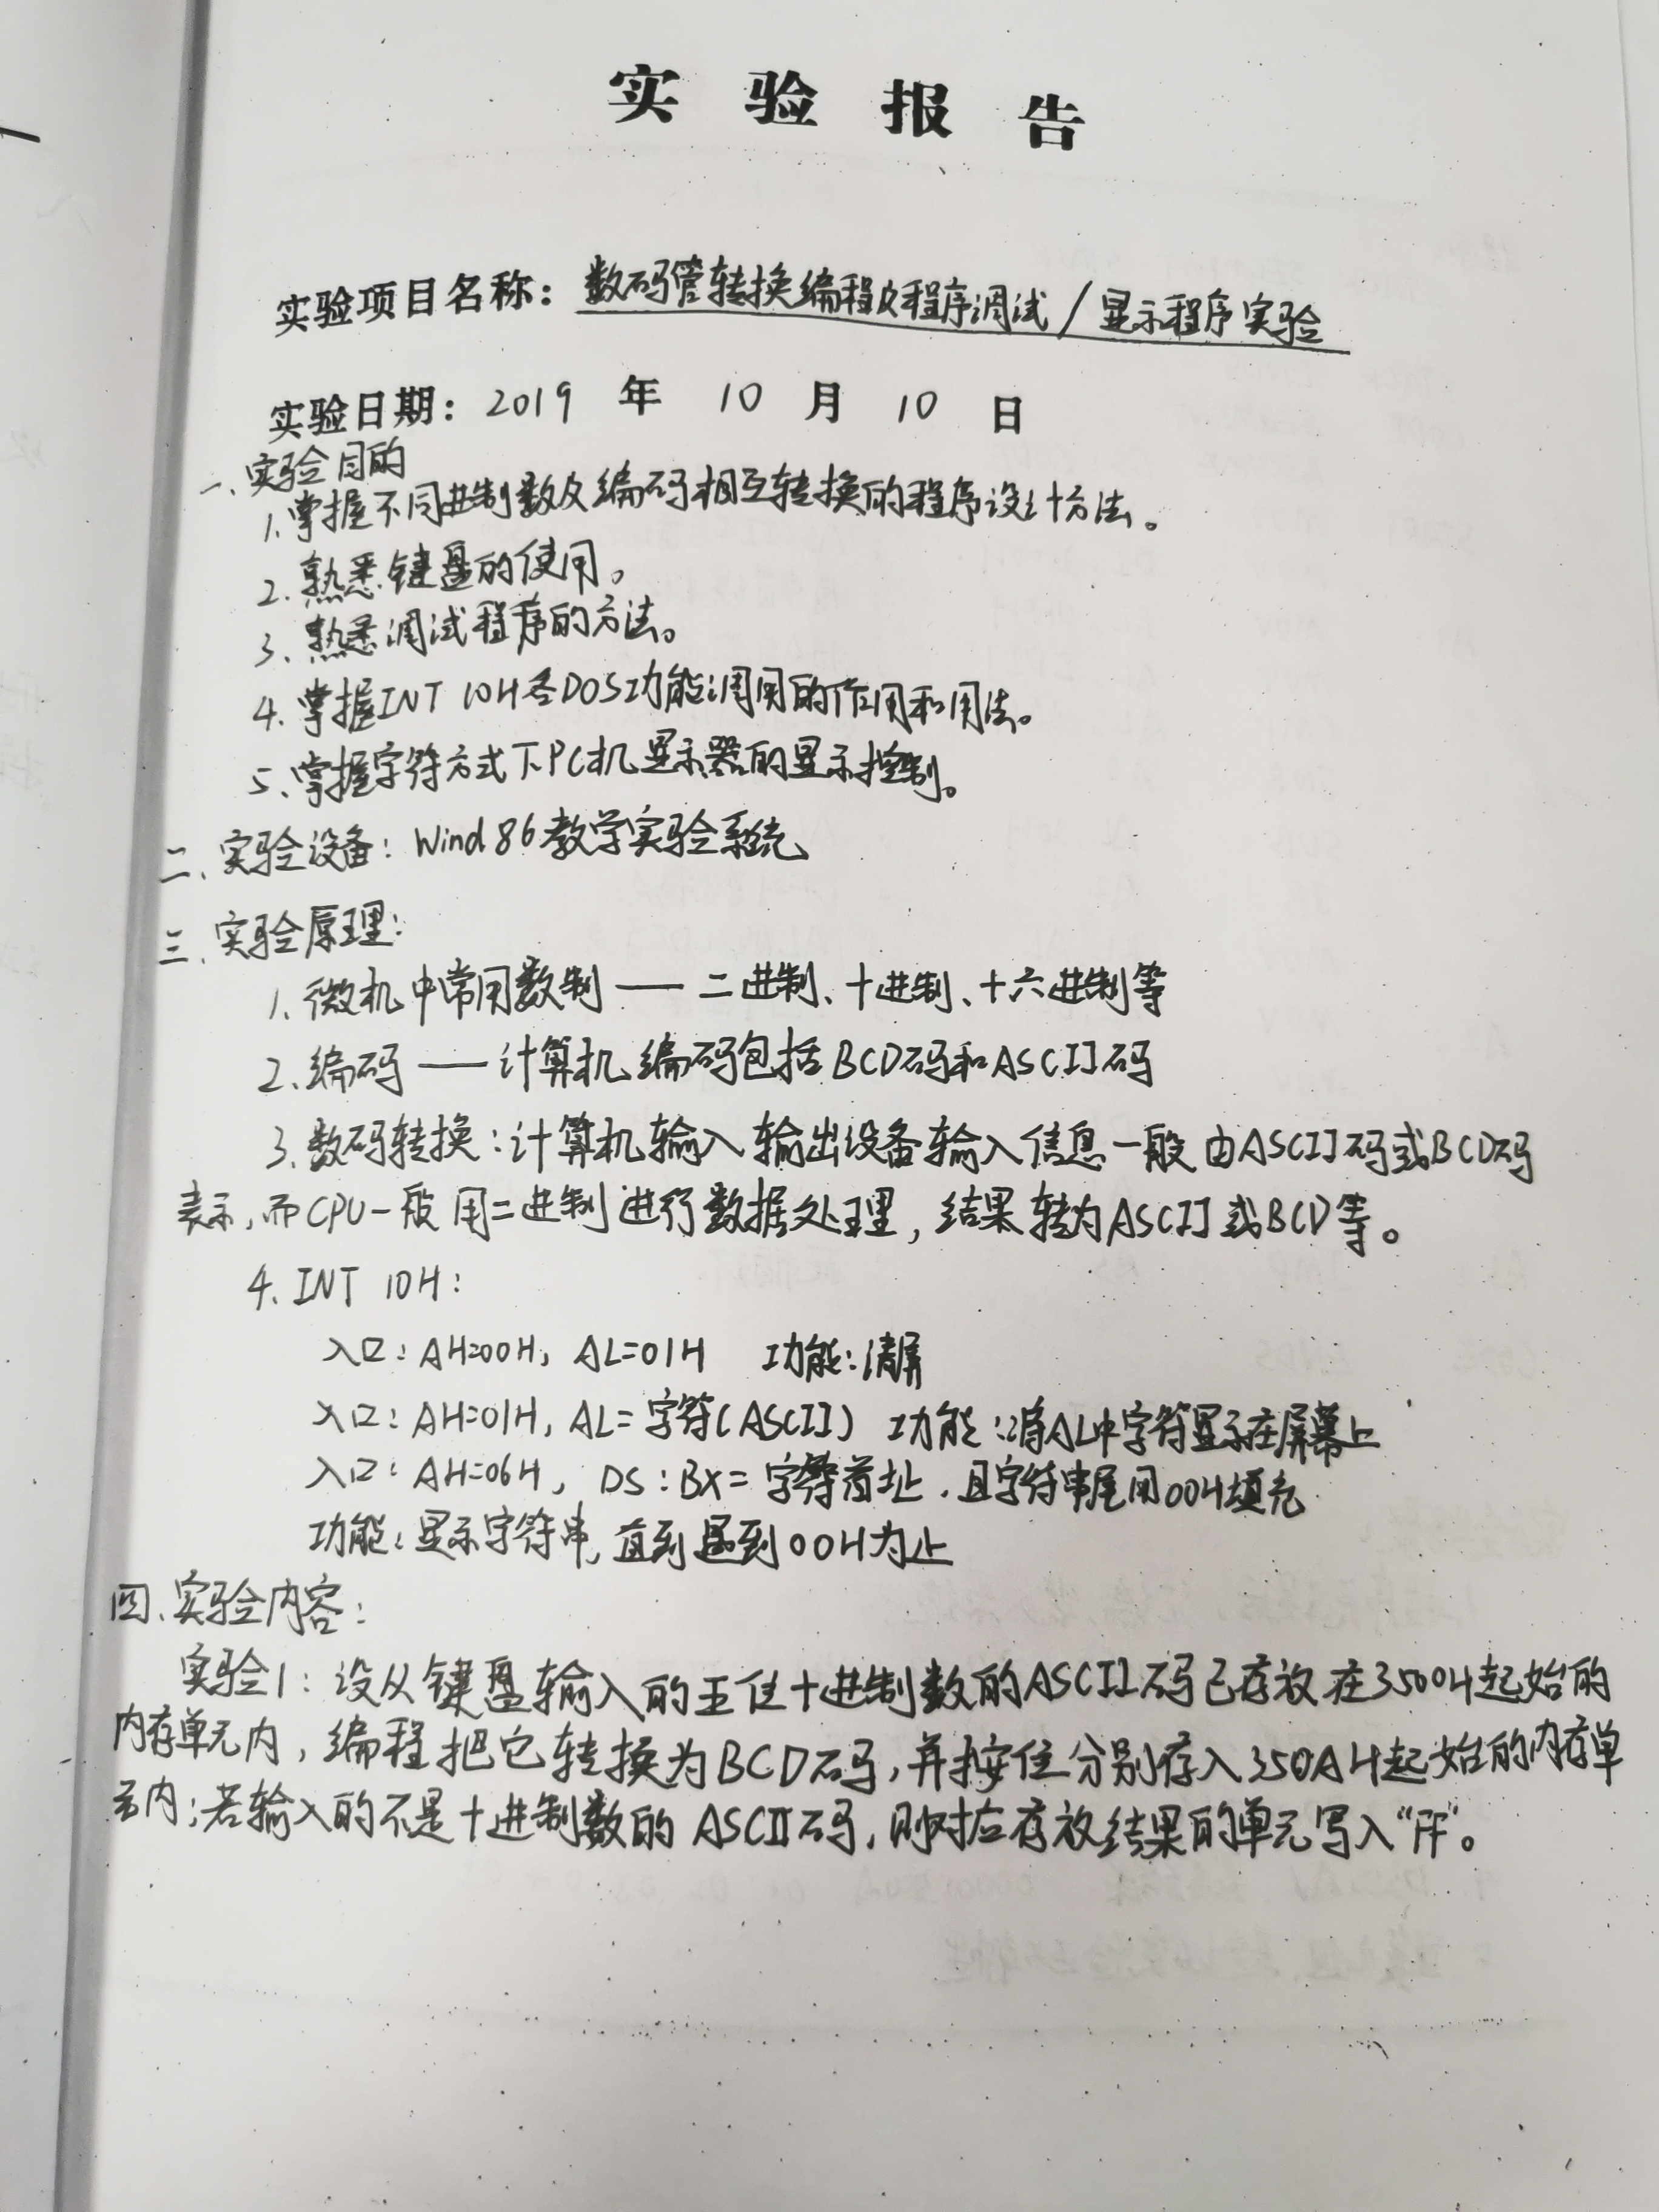 实验报告
实验项目名称：数码管转换编程及程序调试/显示程序实验
实验日期：2019 年 10 月 10 日
一、实验目的
1、掌握不同进制数及编码相互转换的程序设计方法。
2、熟悉键盘的使用。
3、熟悉调试程序的方法。
4、掌握INT 10H各DOS功能调用的作用和用法。
5、掌握字符方式下PC机显示器的显示控制。
二、实验设备：Wind86教学实验系统
三、实验原理：
1、微机中常用数制——二进制、十进制、十六进制等
2、编码——计算机编码包括BCD码和ASCII码
3、数码转换：计算机输入输出设备输入信息一般由ASCII码或BCD码
表示，而CPU一般用二进制进行数据处理，结果转为ASCII或BCD等。
4. INT 10H：
入口：AH=00H，AL=01H 功能：清屏
入口：AH=01H，AL=字符(ASCII) 功能：将AL中字符显示在屏幕上
入口：AH=06H，DS:BX=字符首址，且字符串尾用00H填充
功能：显示字符串，直到遇到00H为止
四、实验内容：
实验1：设从键盘输入的五位十进制数的ASCII码已存放在3500H起始的
内存单元内，编程把它转换为BCD码，并按位分别存入350AH起始的内存单
元内；若输入的不是十进制数的ASCII码，则对应存放结果的单元写入“FF”。